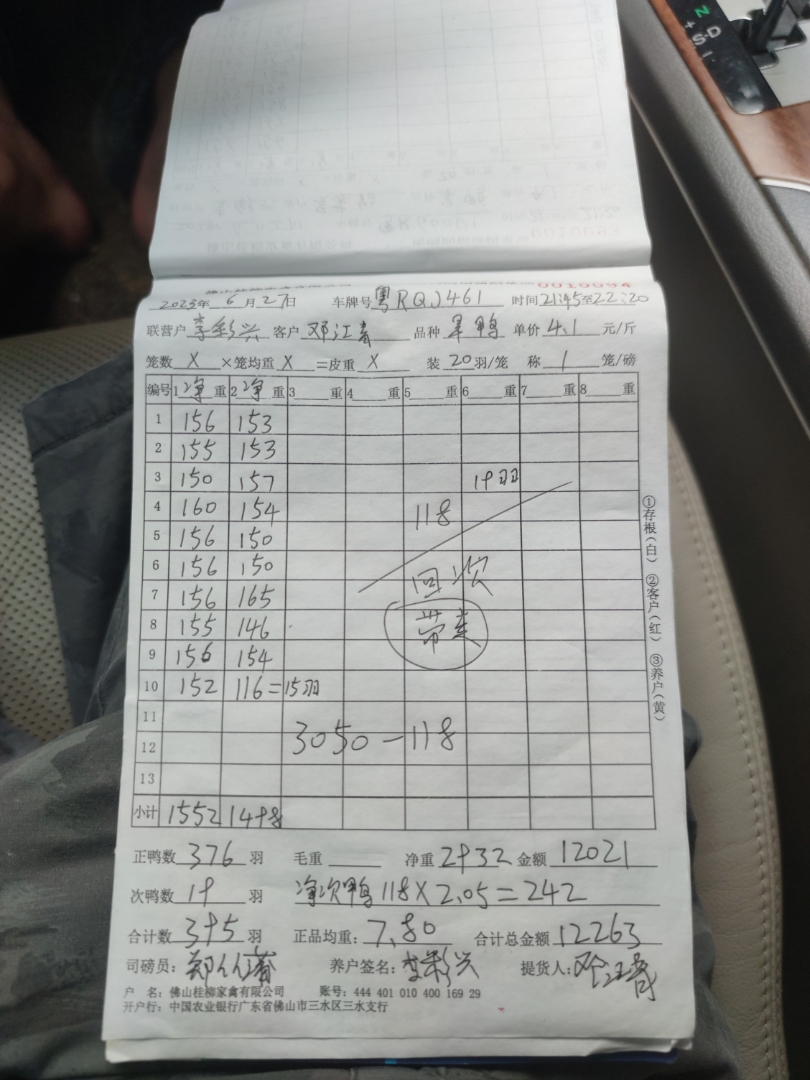 2023年 6 月 27日 车牌号 粤RQJ461 时间 21:45至22:20
联营户 李彩兴 客户 邓江青 品种 单价 4.1 元/斤
笼数 X ×笼均重 X =皮重 X 装 20 羽/笼 称 1 笼/磅
编号 1 净 重 2 净 重 3 重 4 重 5 重 6 重 7 重 8 重
1 156 153
2 155 153
3 150 157 19羽
4 160 154 118
5 156 150
6 156 150 回次
7 156 165
8 155 146 带走
9 156 154
10 152 116=15羽
11
12 3050-118
13
小计 1552 1498
正鸭数 376 羽 毛重 净重 2932 金额 12021
次鸭数 19 羽 净次鸭 118X2.05=242
合计数 395 羽 正品均重: 7.80 合计总金额 12263
司磅员: 养户签名: 李彩兴 提货人: 邓江青
户 名: 佛山桂柳家禽有限公司 账号: 444 401 010 400 169 29
开户行: 中国农业银行广东省佛山市三水区三水支行
①存根(白) ②客户(红) ③养户(黄)
N
+ S-D